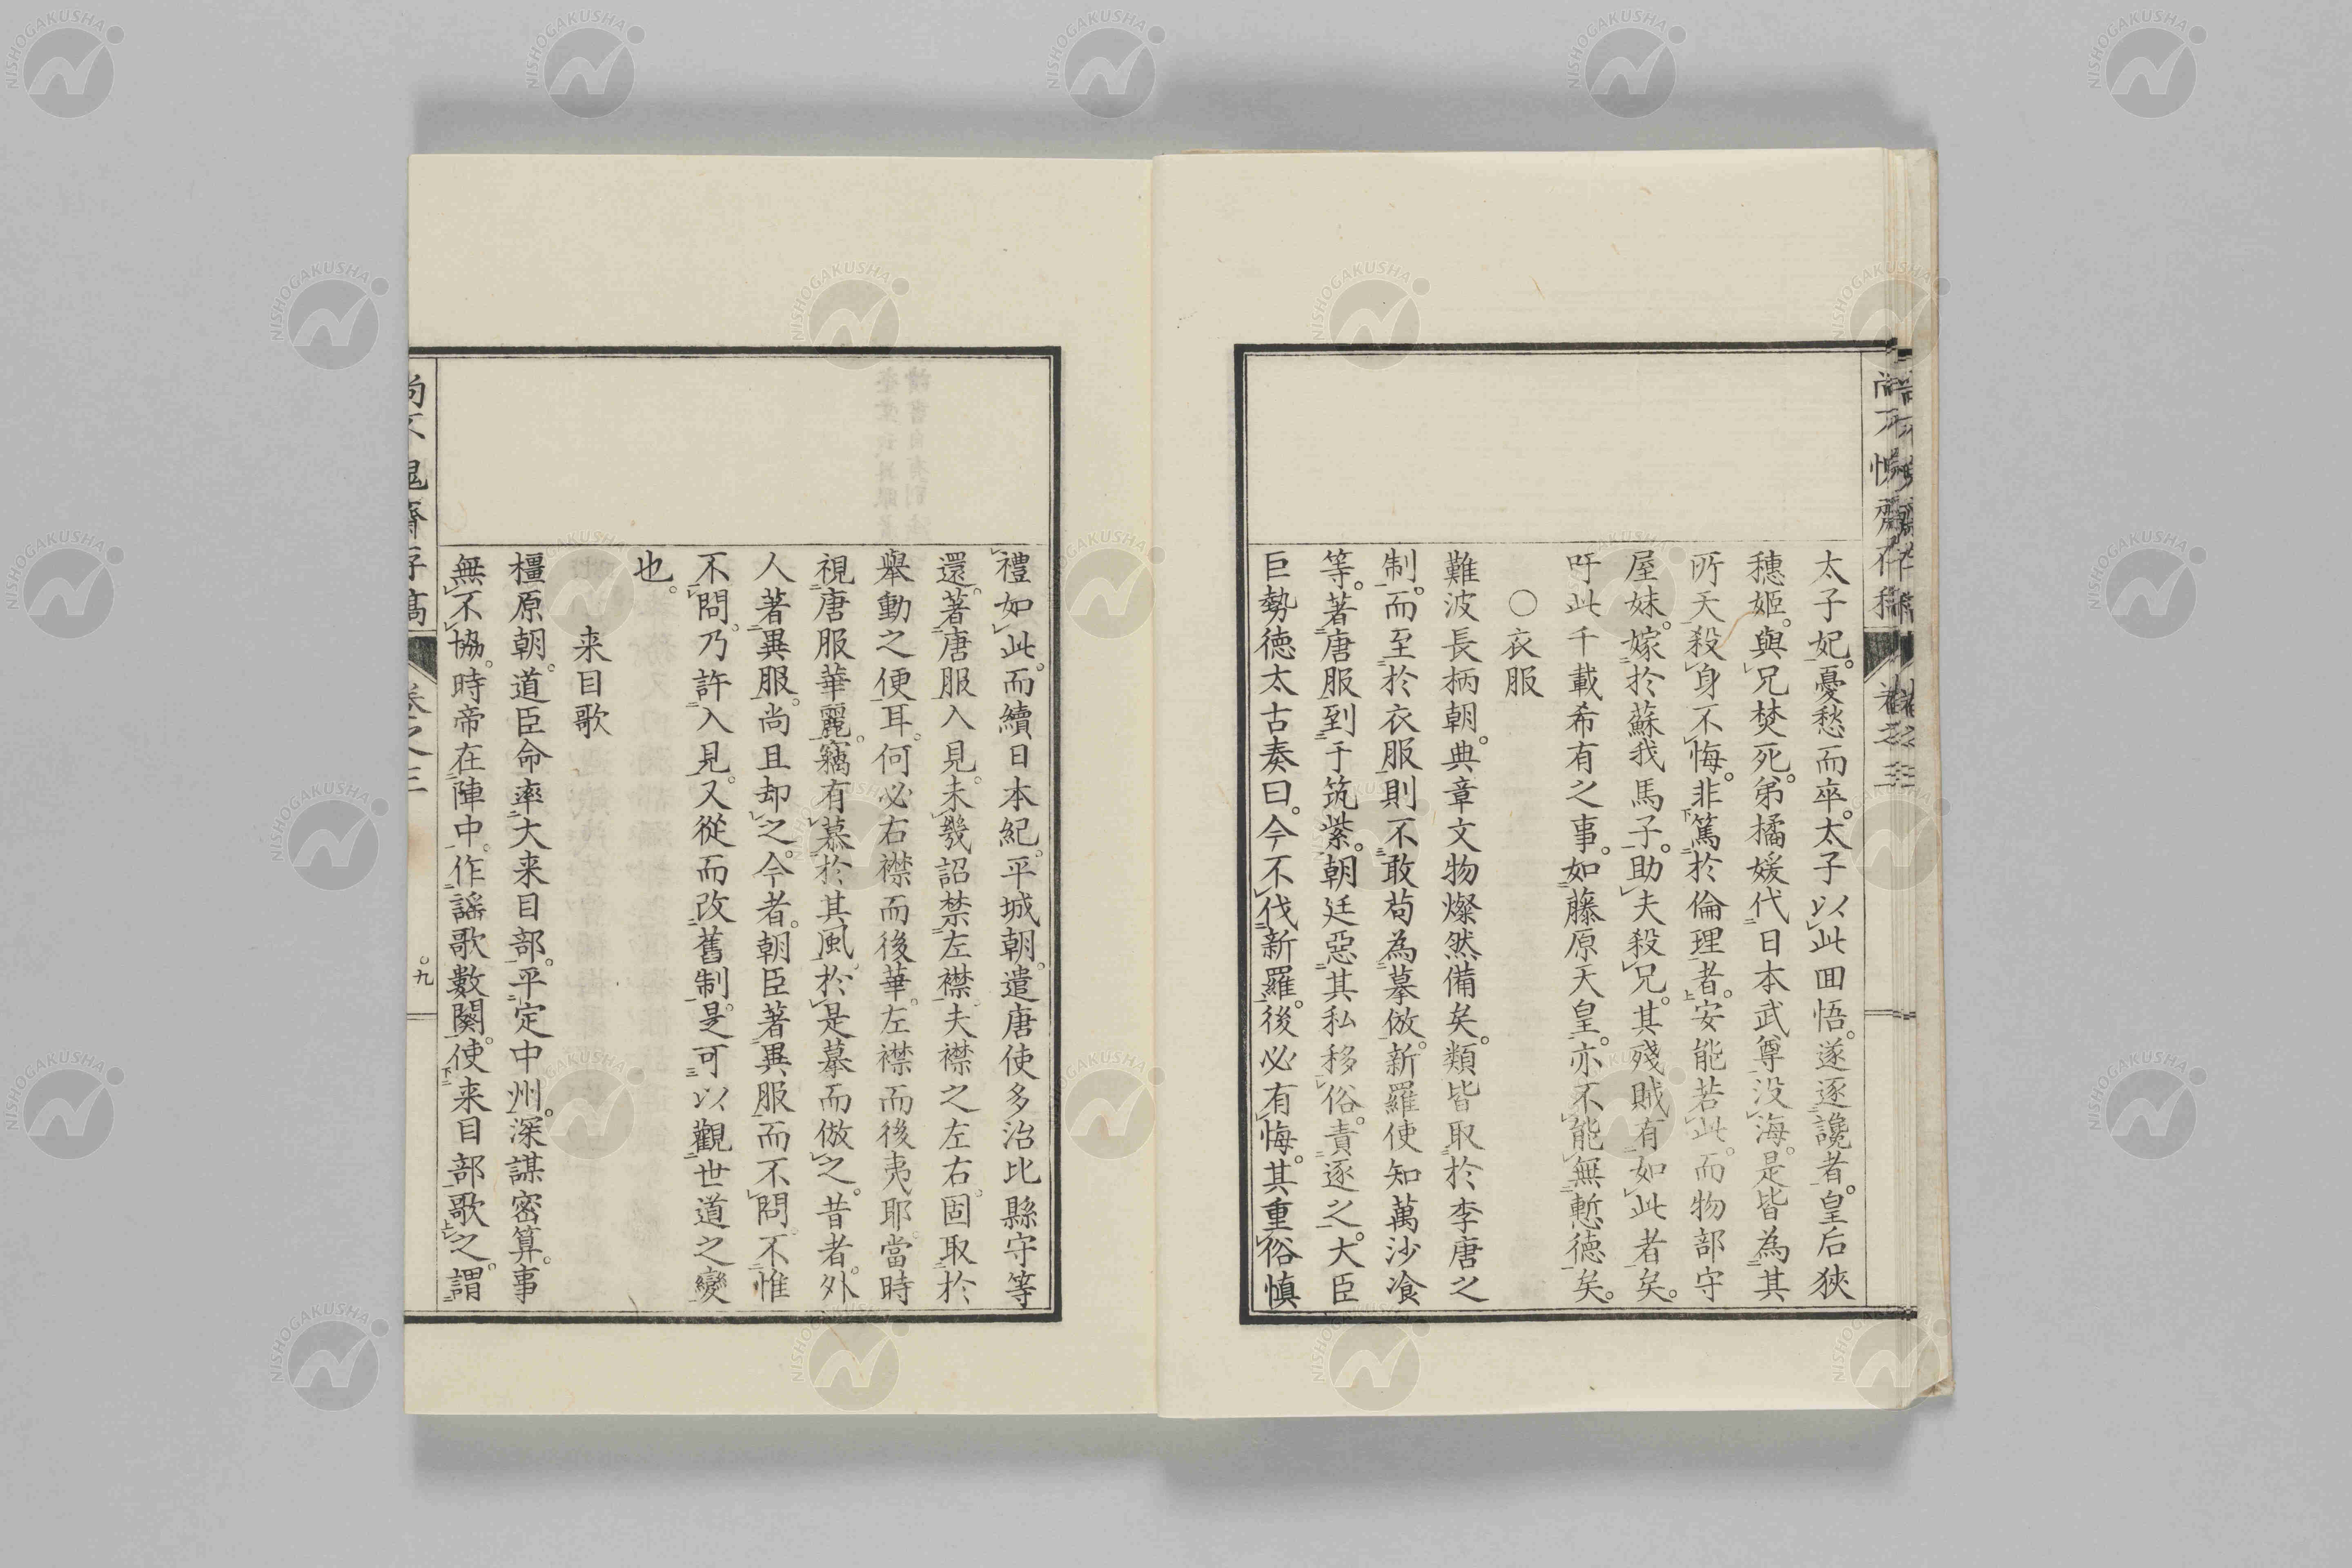 太子妃。憂愁而卒。太子以此囬悟。遂逐讒者。皇后狹
穗姬。與兄焚死。弟橘媛代日本武尊没海。是皆為其
所天殺身不悔。非篤於倫理者。安能若此。而物部守
屋妹。嫁於蘇我馬子。助夫殺兄。其殘賊有如此者矣。
吁此千載希有之事。如藤原天皇。亦不能無慙德矣。
○衣服
難波長柄朝。典章文物燦然備矣。類皆取於李唐之
制。而至於衣服則不敢苟為摹倣。新羅使知萬沙飡
等。著唐服到于筑紫。朝廷惡其私移俗。責逐之。大臣
巨勢徳太古奏曰。今不伐新羅。後必有悔。其重俗慎
禮如此。而續日本紀。平城朝。遣唐使多治比縣守等
還。著唐服入見。未幾詔禁左襟。夫襟之左右。固取於
舉動之便耳。何必右襟而後華。左襟而後夷耶。當時
視唐服華麗。竊有慕於其風。於是摹而倣之。昔者。外
人著異服。尚且却之。今者。朝臣著異服而不問。不惟
不問。乃許入見。又從而改舊制。是可以觀世道之變
也。
来目歌
橿原朝。道臣命率大来目部。平定中州。深謀密算。事
無不協。時帝在陣中。作謡歌數闋。使来目部歌之。謂
九
NISHOGAKUSHA